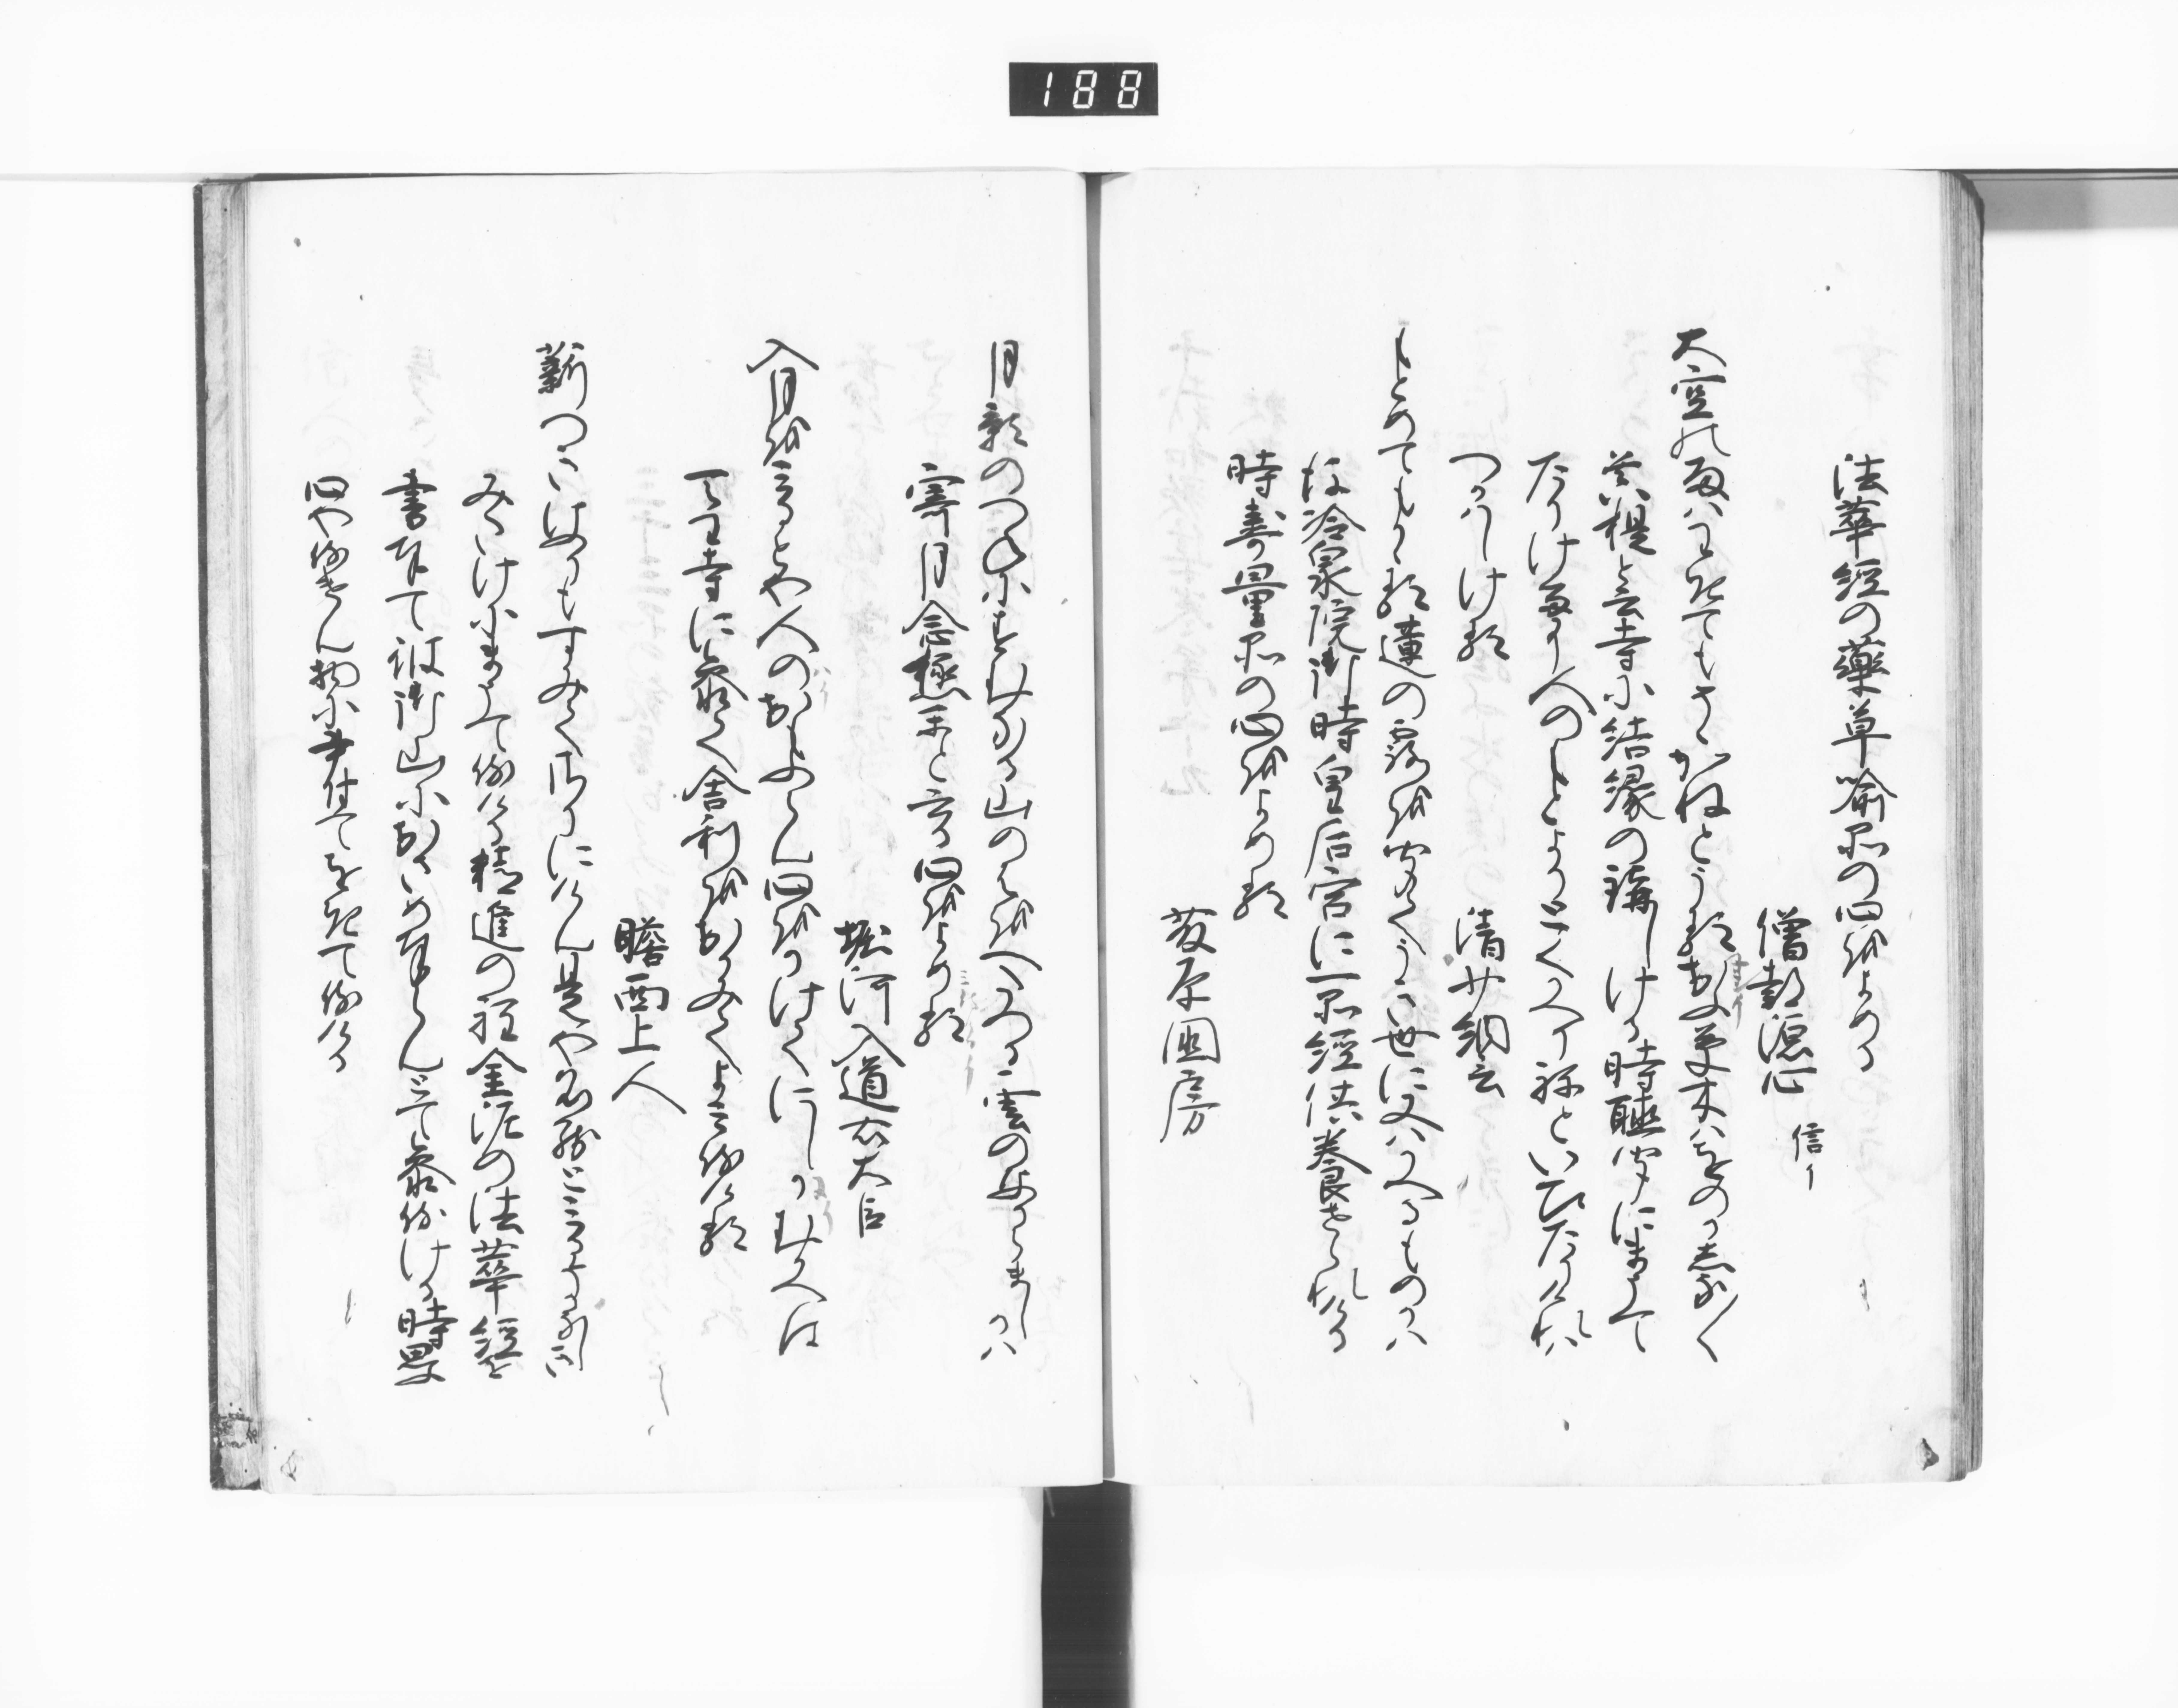 188
法華経の薬草喩品の心をよめる
僧都源心
信イ
大空の雨はわきてもそゝかねとうるふ草木はをのかしな〳〵
菩提と云寺に結縁の講しける時聴聞にまうて
たりけるに人のもとよりとくかへりねといひたりけれは
つかはしける
清少納言
もとめてもかゝる蓮の露をゝきてうき世に又はかへるものかは
後冷泉院御時皇后宮に一品経供養せられける
時寿量品の心をよめる
藤原国房
月影のつねにすむなる山のはをへたつる雲のなからましかは
寄月念極楽と云心をよめる
堀河入道右大臣
入月をみるとや人のおもふらん心をかけてにしにむかへは
天王寺に参て舎利をおかみてよみ侍ける
瞻西上人
薪つき
みたけにまうて侍ける精進の程金泥の法華経を
書奉て彼御山におさめ奉らんとて参侍ける時
心や侍けん物に書付てをきて侍ける